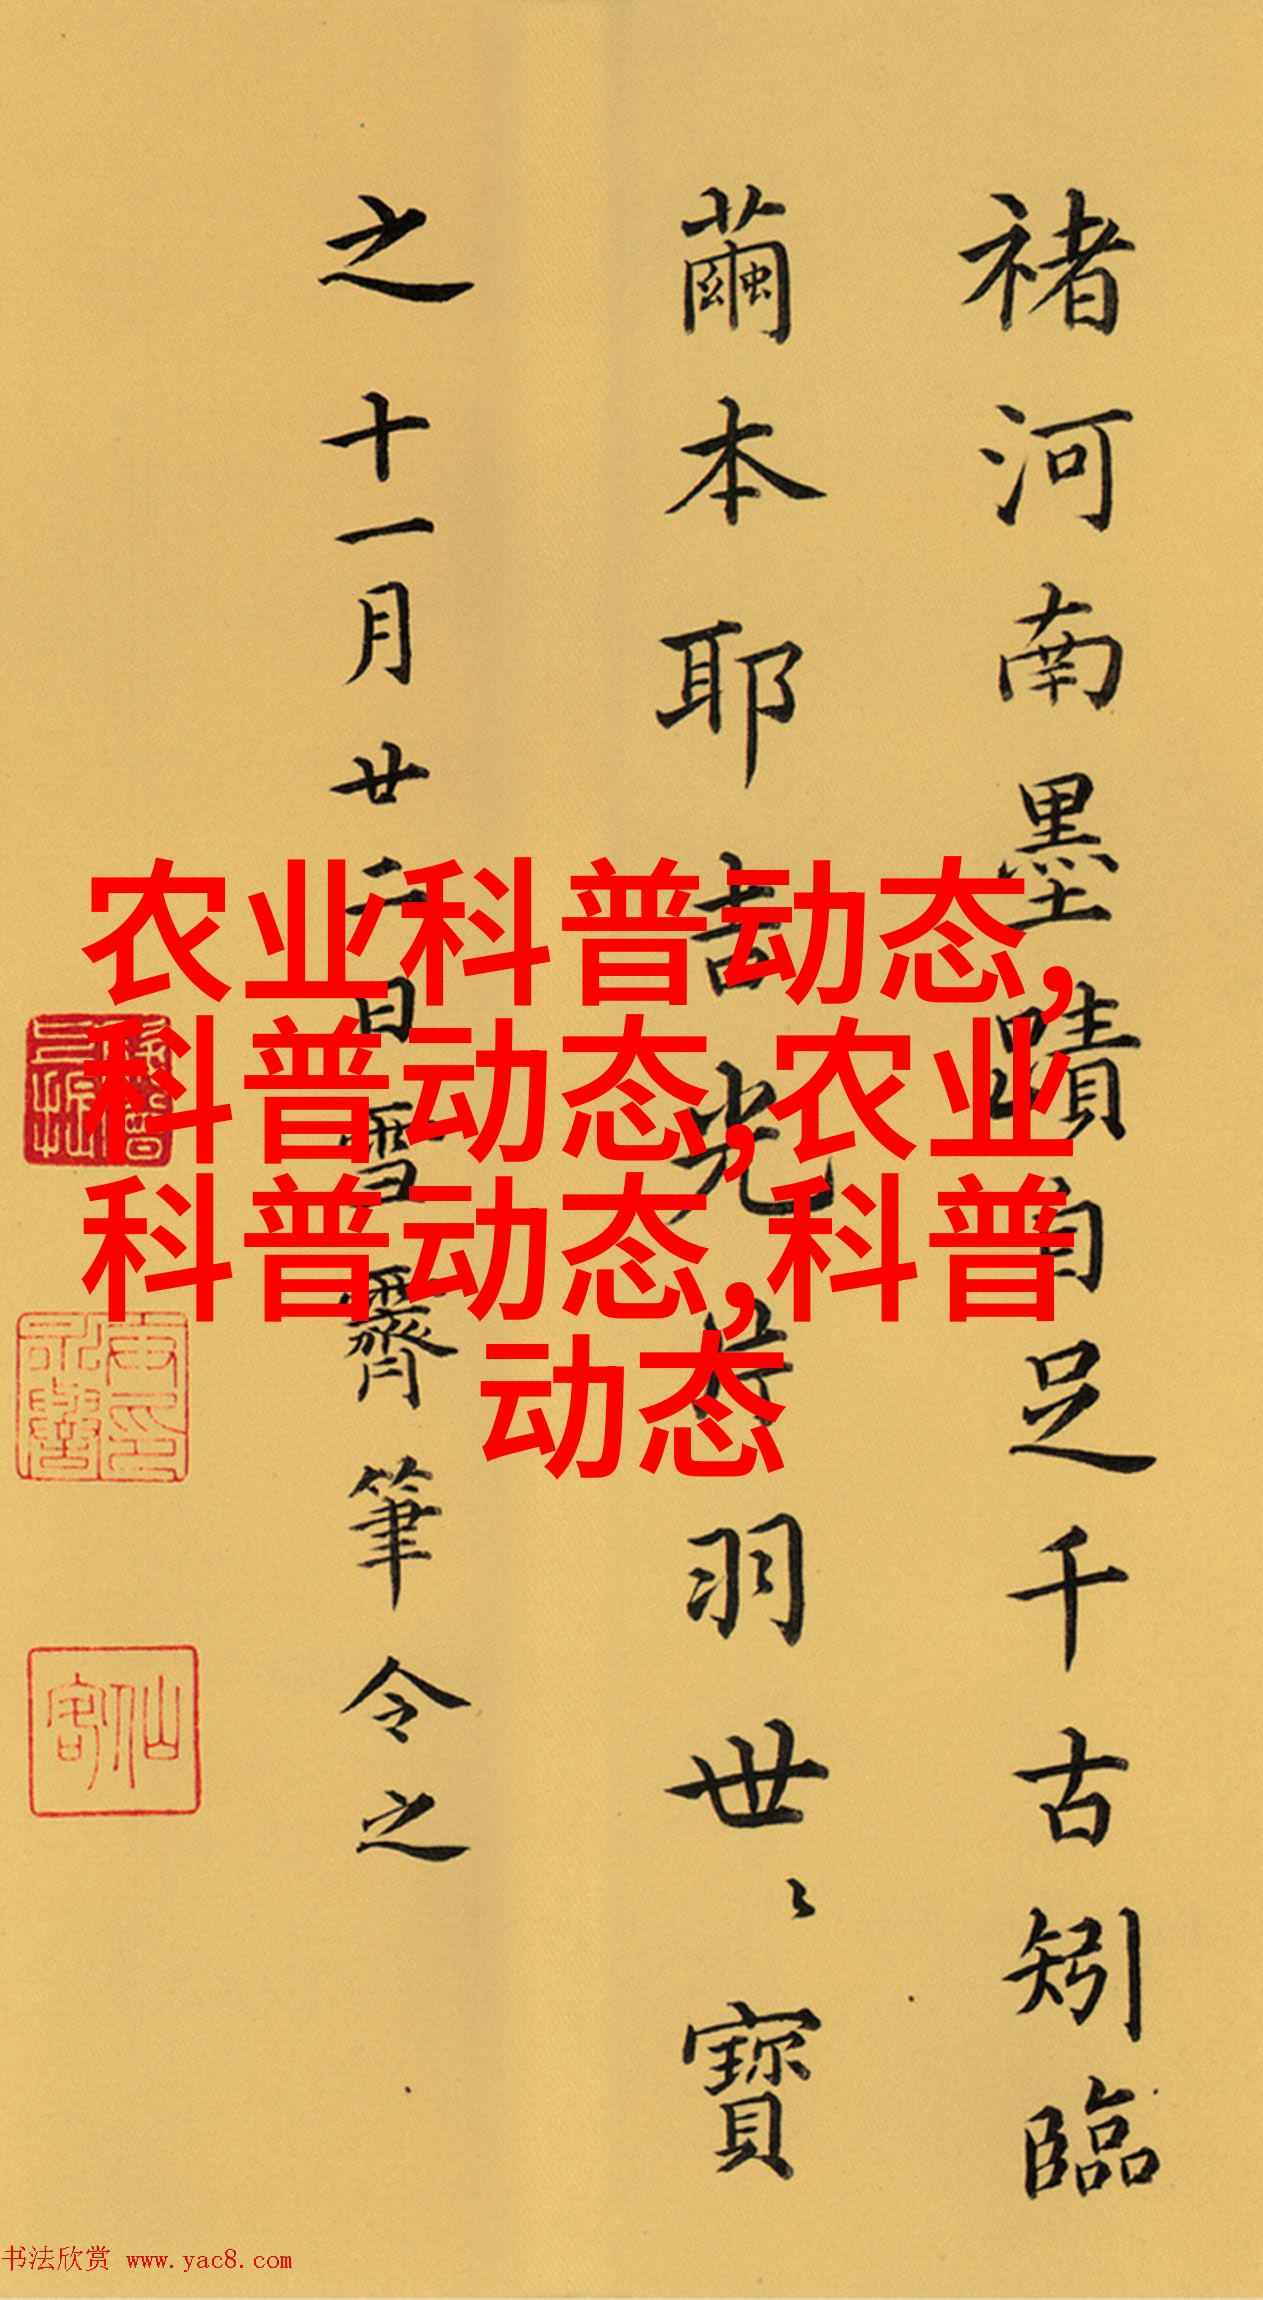 褚河南墨蹟自足千古矧臨
繭本耶吉光片羽世〻寶
之十一月廿二日雪霽筆令之
农业科普动态,
科普动态,农业
科普动态,科普
动态
仙客
书法欣赏 www.yac8.com